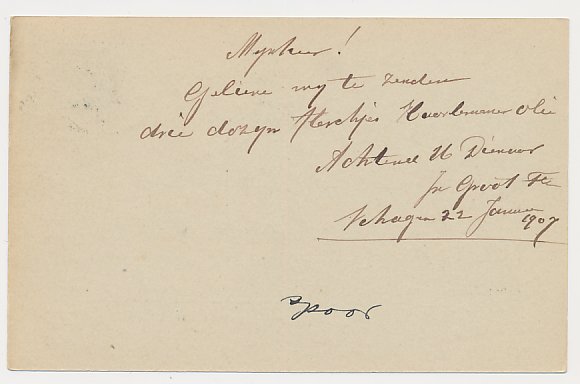 Mynheer!
Gelieve my te zenden
drie dozyn fleschjes Haarlemmer olie
Achtend U Dienaar
Jn Groot Fz
Schagen 22 Januari 1907
spoor